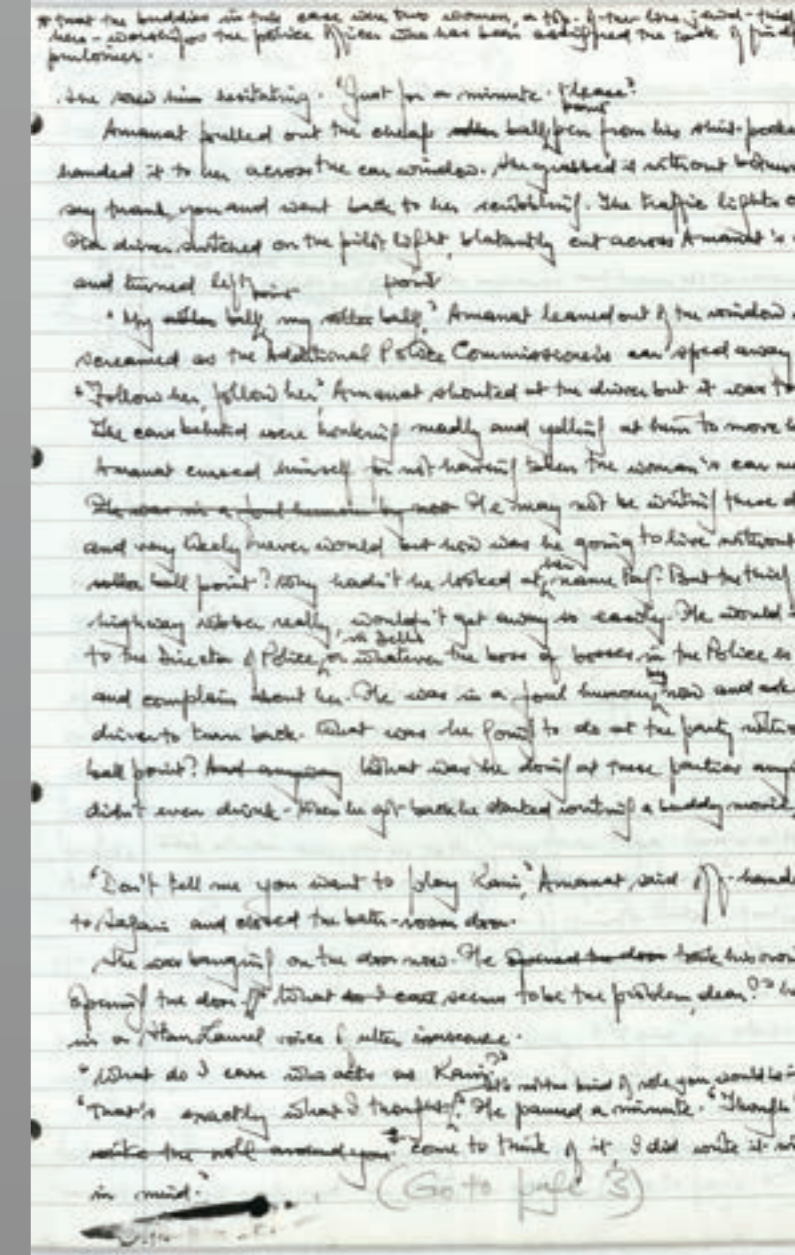 * that the buddies in this case were two women, a top-of-the-line jewel-thief
hero-worships the police officer who has been assigned the task of
.She saw him hesitating. 'Just for a minute. Please.'
point
Amanat pulled out the cheap roller ball pen from his shirt-pocket
handed it to her across the car window. She grabbed it without
say thank you and went back to her scribbling. The traffic lights
driver switched on the pilot light, blatantly cut across Amanat's
and turned left.
point point
'My roller ball, my roller ball,' Amanat leaned out of the window
screamed as the Additional Police Commissioner's car sped away
'Follow her, follow her' Amanat shouted at the driver but it was
The cars behind were honking madly and yelling at him to move
Amanat cursed himself for not having taken the woman's car
He was in a foul humour by now He may not be writing these
and very likely never would but how was he going to live without
her
roller ball point? Why hadn't he looked at name tag? But the thief
highway robber really, wouldn't get away so easily. He would
in Delhi
to the Director of Police, or whatever the boss of bosses in the Police is
by
and complain about her. He was in a foul humour now and
driver to turn back. What was he going to do at the party
ball point? And anyway What was he doing at these parties
didn't even drink. When he got back he started writing a buddy movie
'Don't tell me you want to play Rani,' Amanat said off-hand
to and closed the bath-room door.
She was banging on the door now. He opened the door took his own
opening the door. 'What do I care seems to be the problem, dear?'
in a Stan Laurel voice of utter innocence.
'What do I care who acts as Rani?'
kind of role you would
'That's exactly what I thought.' He paused a minute. 'Though
write the roll around you come to think of it, I did write it
in mind.'
(Go to page 3)